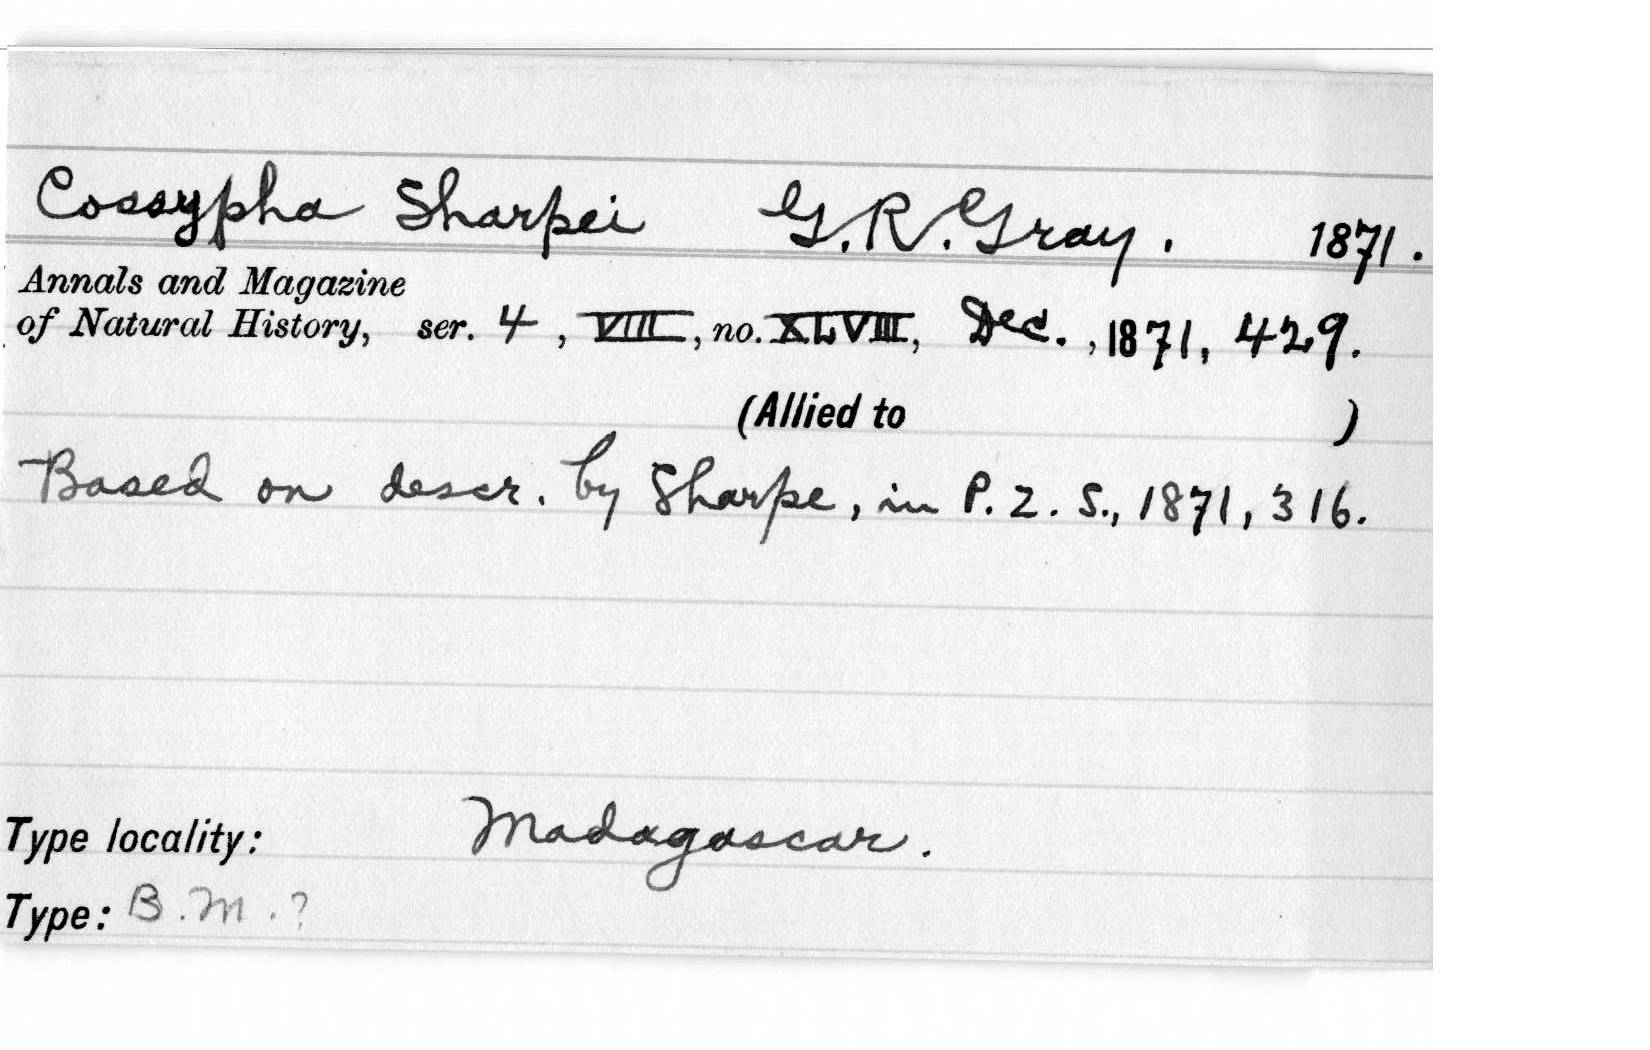 Cossypha Sharpei G.R.Gray. 1871.
Annals and Magazine
of Natural History, ser. 4, VIII, no. XLVIII, Dec., 1871, 429.
(Allied to )
Based on descr. by Sharpe, in P.Z.S., 1871, 316.
Type locality: Madagascar.
Type: B.M.?